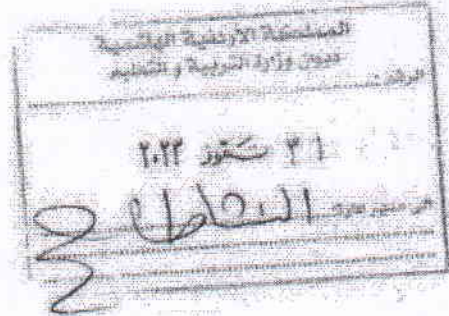 المملكة الأردنية الهاشمية
ديوان وزارة التربية والتعليم
الرقم:
٣١ تموز ٢٠٢٢
النشاط